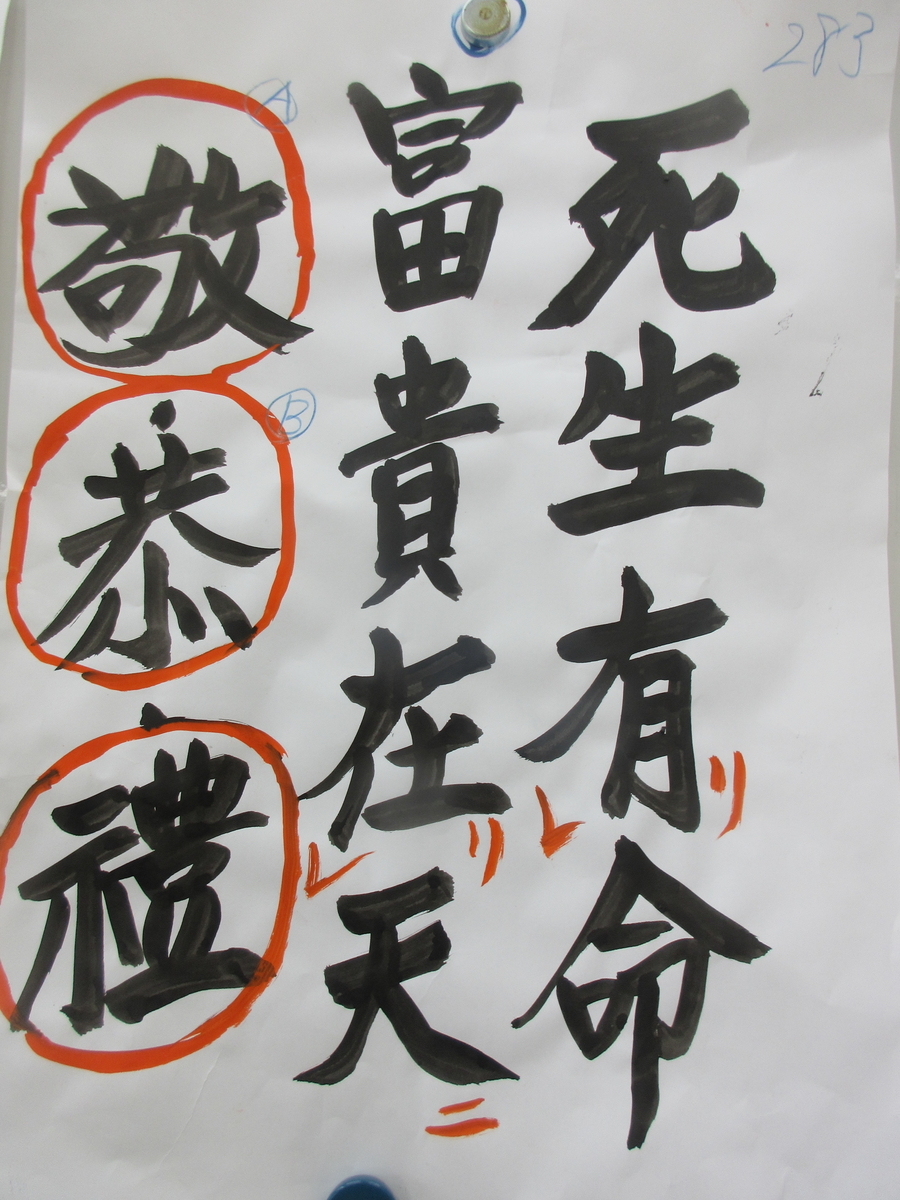 283
死生有リレ命
富貴在リレ天ニ
Ⓐ敬
Ⓑ恭
禮